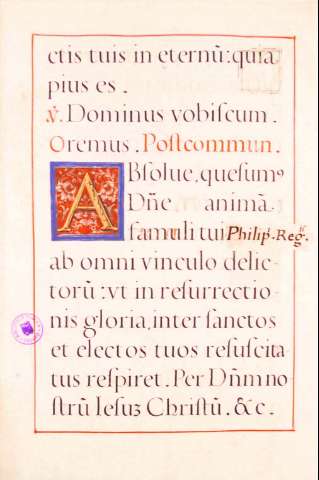 ctis tuis in eternū: quia
pius es.
℣. Dominus vobiſcum.
Oremus. Poſtcommun.
Abſolue, quęſumꝰ
Dn̄e animā
famuli tui Philip. Reg.
ab omni vinculo delic-
torū: vt in reſurrectio-
nis gloria, inter ſanctos
et electos tuos reſuſcita
tus reſpiret. Per Dn̄m no
ſtrū Ieſuʒ Chriſtū. &c.